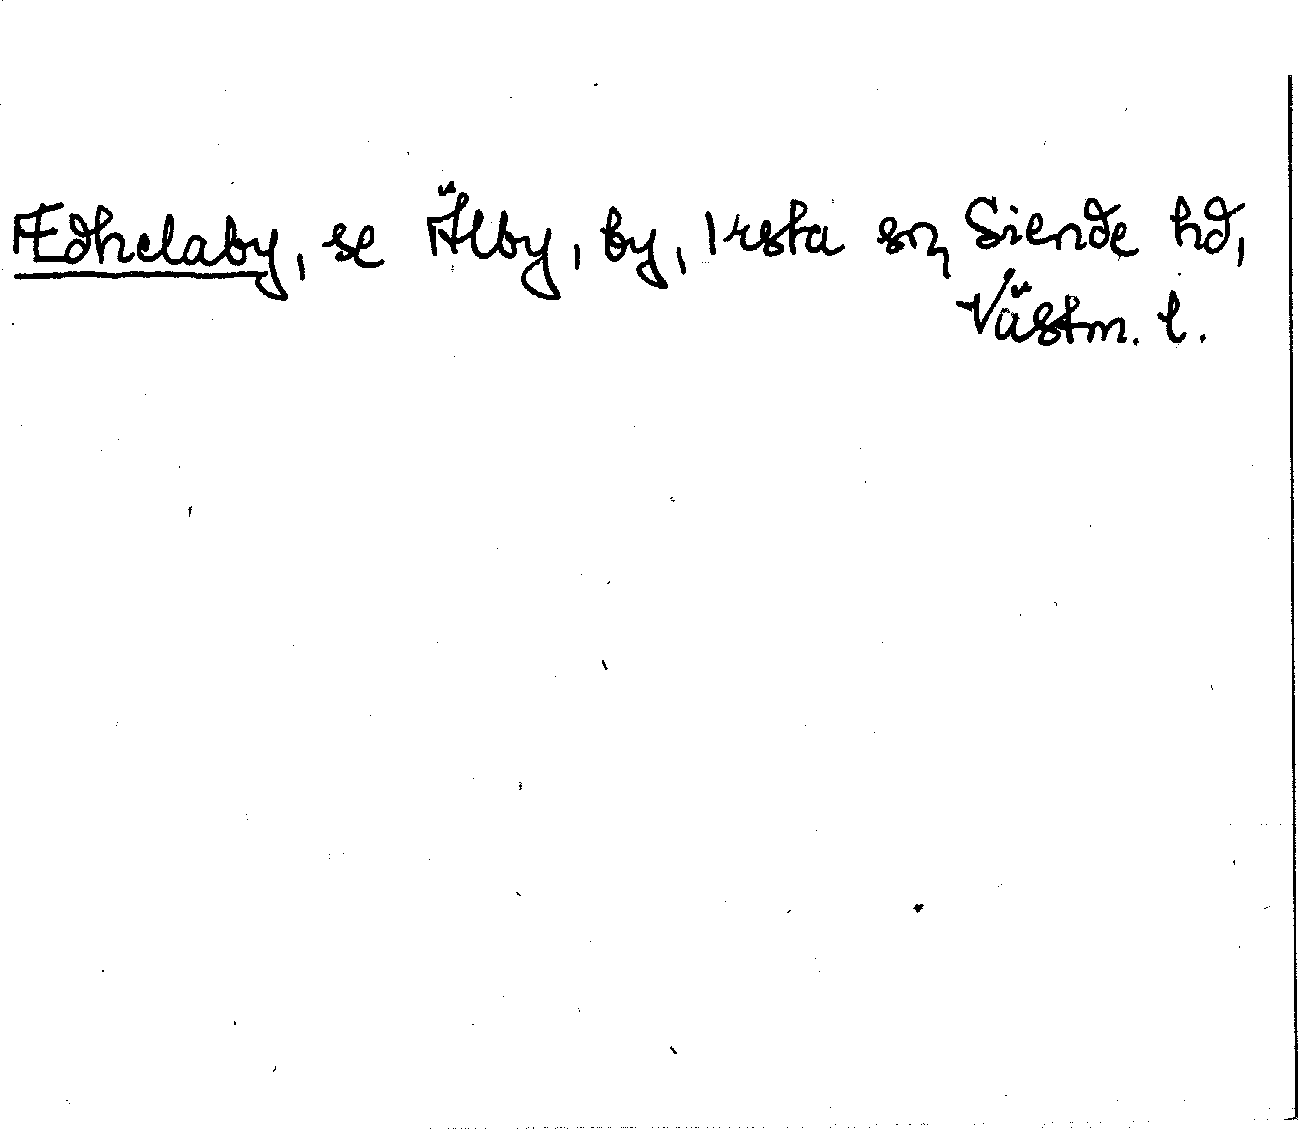 Ædhelaby, se Älby, by, Irsta sn, Siende hd,
Västm. l.